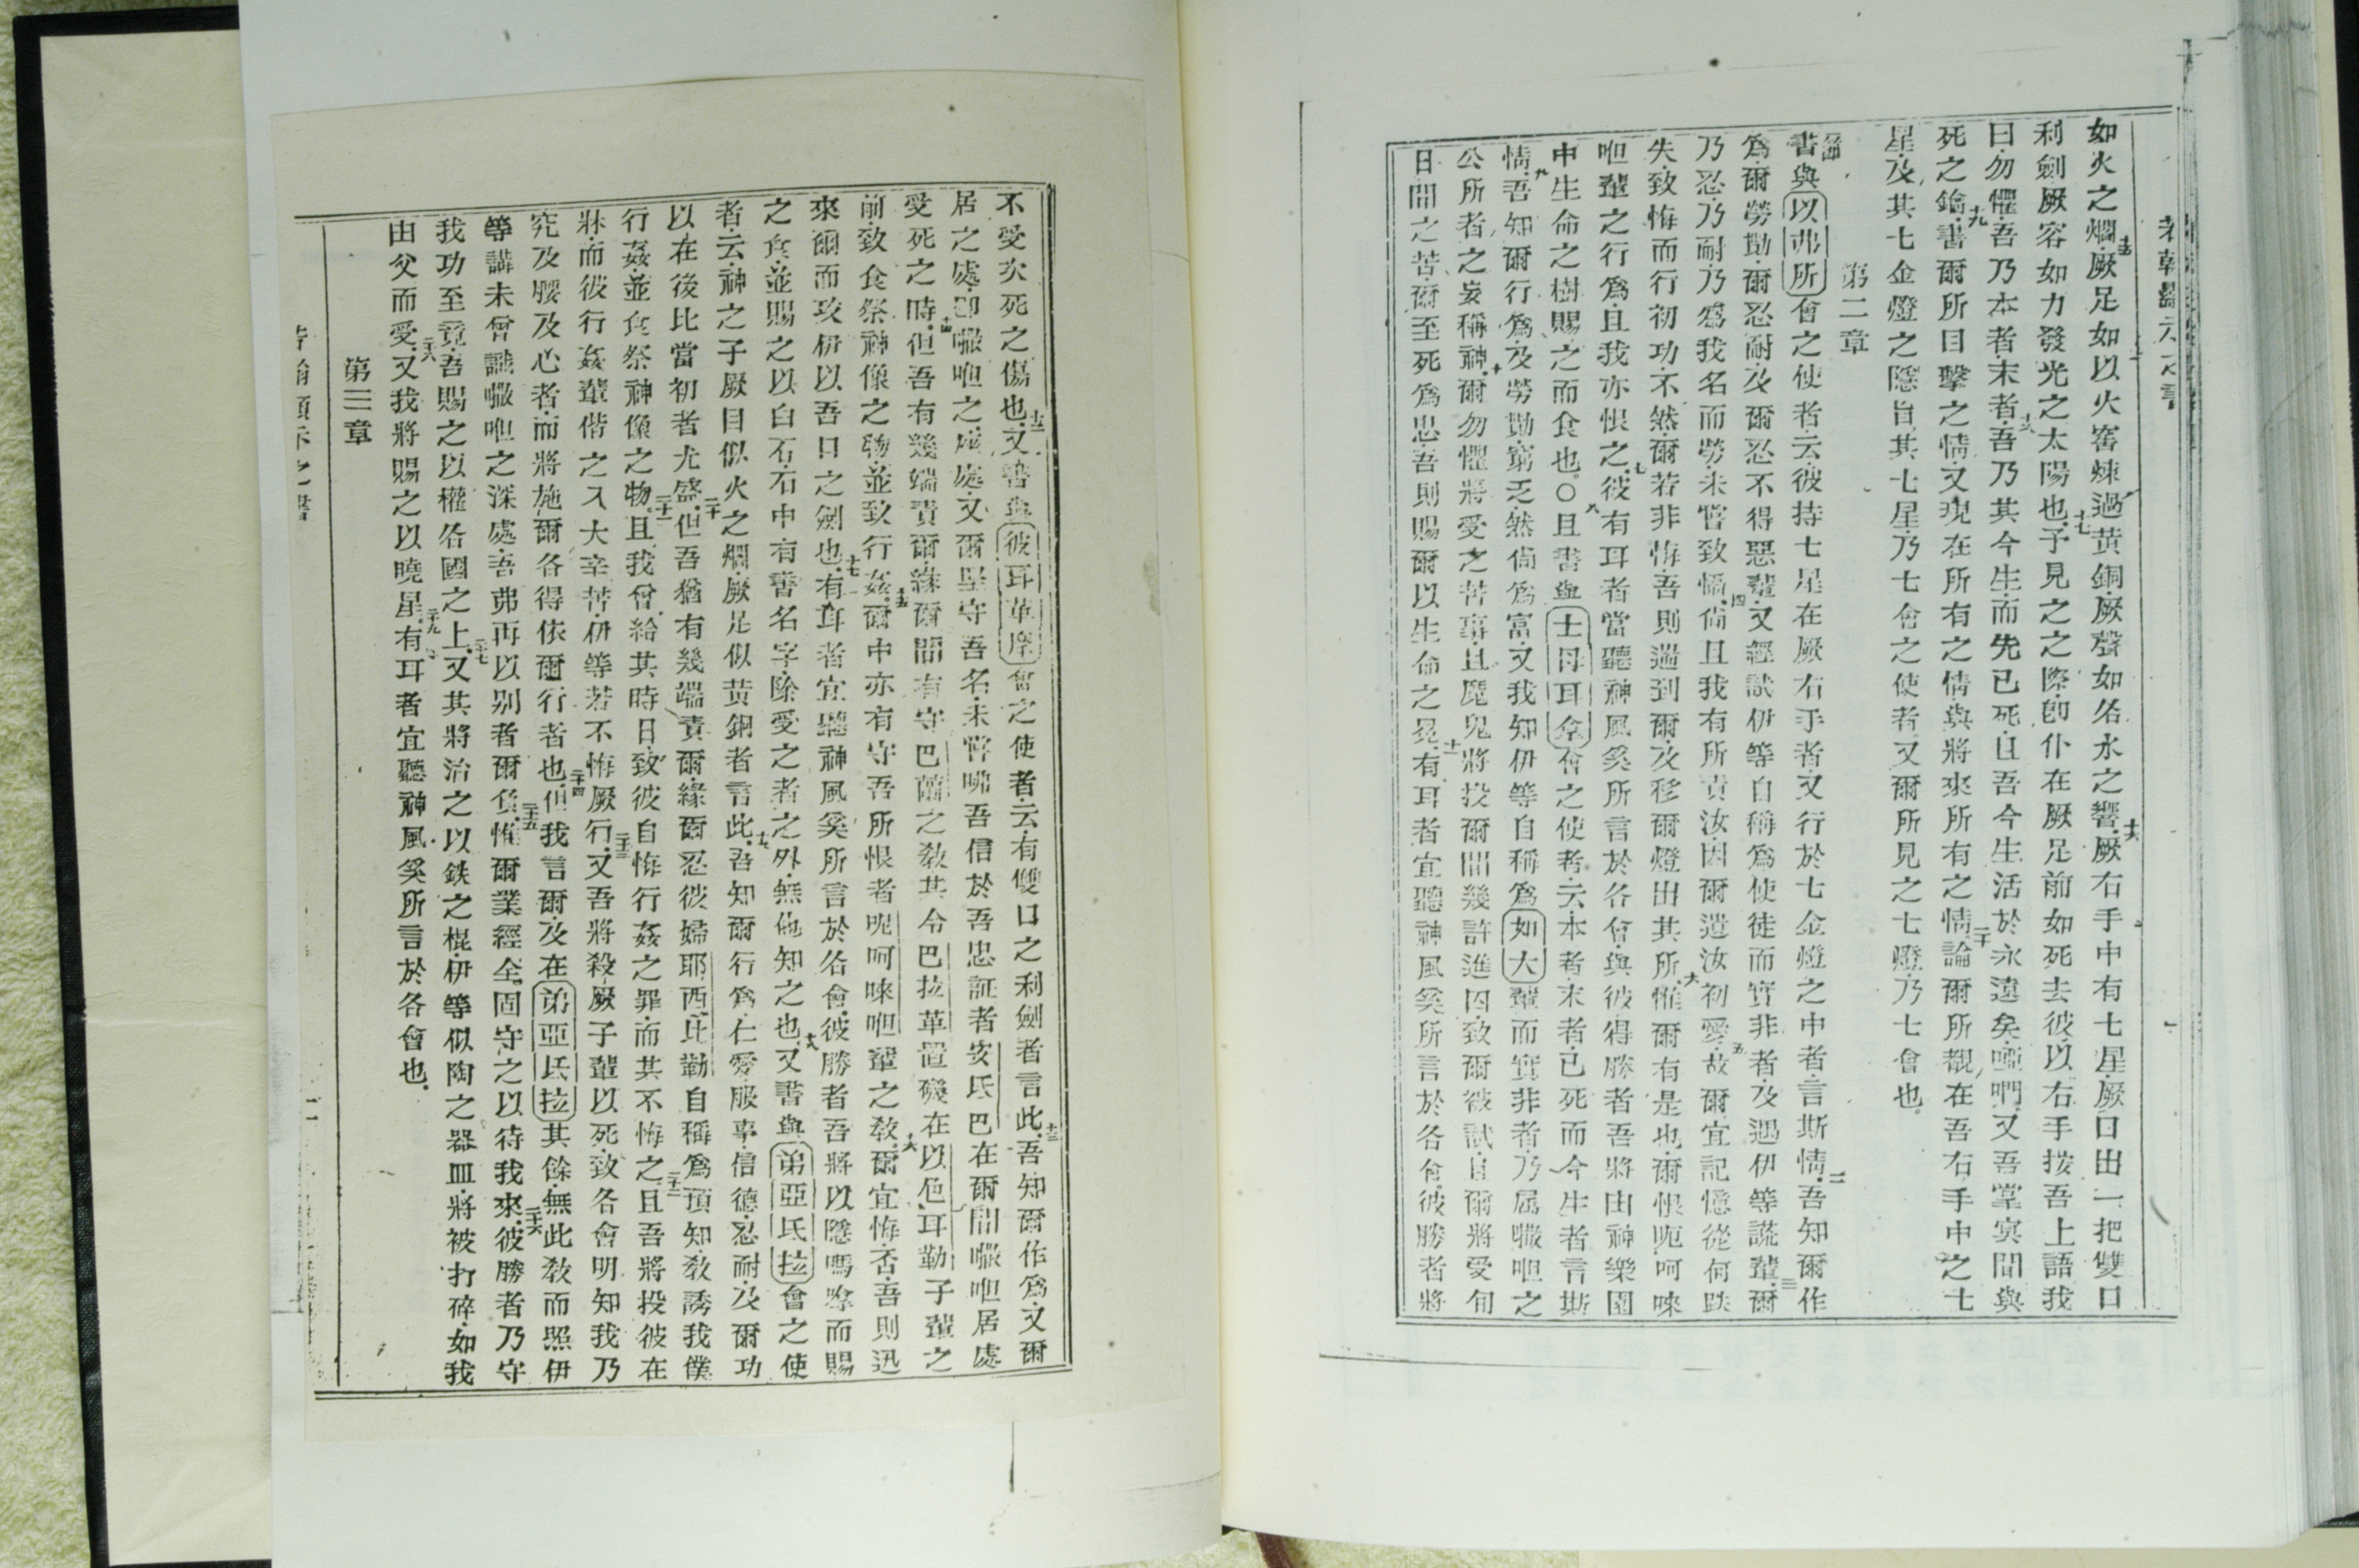 如火之爓厥足如以火窰煉過黃銅厥聲如多水之響厥右手中有七星厥口出一把雙口
利劍厥容如力發光之太陽也予見之之際卽仆在厥足前如死去彼以右手按吾上語我
曰勿懼吾乃本者末者吾乃其今生而先已死且吾今生活於永遠矣啞們又吾掌冥間與
死之鑰書爾所目擊之情又現在所有之情與將來所有之情論爾所覩在吾右手中之七
星及其七金燈之隱旨其七星乃七會之使者又爾所見之七燈乃七會也
第二章
書與以弗所會之使者云彼持七星在厥右手者又行於七金燈之中者言斯情吾知爾作
爲爾勞勩爾忍耐及爾忍不得惡輩又經試伊等自稱爲使徒而實非者及遇伊等謊輩爾
乃忍乃耐乃爲我名而勞未嘗致惱倘且我有所責汝因爾遺汝初愛故爾宜記憶從何跌
失致悔而行初功不然爾若非悔吾則遄到爾及移爾燈出其所惟爾有是也爾恨呢呵唻
呾輩之行爲且我亦恨之彼有耳者當聽神風奚所言於各會與彼得勝者吾將由神樂園
中生命之樹賜之而食也○且書與士每耳拿會之使者云本者末者已死而今生者言斯
情吾知爾行爲及勞勩窮乏然尙爲富又我知伊等自稱爲如大輩而實非者乃属㘔呾之
公所者之妄稱神爾勿懼將受之苦事且魔鬼將投爾間幾許進囚致爾被試且爾將受旬
日間之苦爾至死爲忠吾則賜爾以生命之冕有耳者宜聽神風奚所言於各會彼勝者將
不受次死之傷也又書與彼耳革摩會之使者云有雙口之利劍者言此吾知爾作爲又爾
居之處卽㘔呾之座處又爾堅守吾名未嘗咈吾信於吾忠証者安氐巴在爾間㘔呾居處
受死之時但吾有幾端責爾緣爾間有守巴蘭之敎其令巴拉革置礙在以色耳勒子輩之
前致食祭神像之物並致行姦爾中亦有守吾所恨者呢呵唻呾輩之敎爾宜悔否吾則迅
來爾而攻伊以吾口之劍也有耳者宜聽神風奚所言於各會彼勝者吾將以隱嗎嗱而賜
之食並賜之以白石石中有書名字除受之者之外無他知之也又書與弟亞氐拉會之使
者云神之子厥目似火之爓厥足似黃銅者言此吾知爾行爲仁愛服事信德忍耐及爾功
以在後比當初者尤盛但吾猶有幾端責爾緣爾忍彼婦耶西比勒自稱爲預知敎誘我僕
行姦並食祭神像之物且我曾給其時日致彼自悔行姦之罪而其不悔之且吾將投彼在
牀而彼行姦輩偕之入大辛苦伊等若不悔厥行又吾將殺厥子輩以死致各會明知我乃
究及腰及心者而將施爾各得依爾行者也但我言爾及在弟亞氐拉其餘無此敎而照伊
等講未曾識㘔呾之深處吾弗再以别者爾負惟爾業經全固守之以待我來彼勝者乃守
我功至竟吾賜之以權各國之上又其將治之以鉄之棍伊等似陶之器皿將被打碎如我
由父而受又我將賜之以曉星有耳者宜聽神風奚所言於各會也
第三章